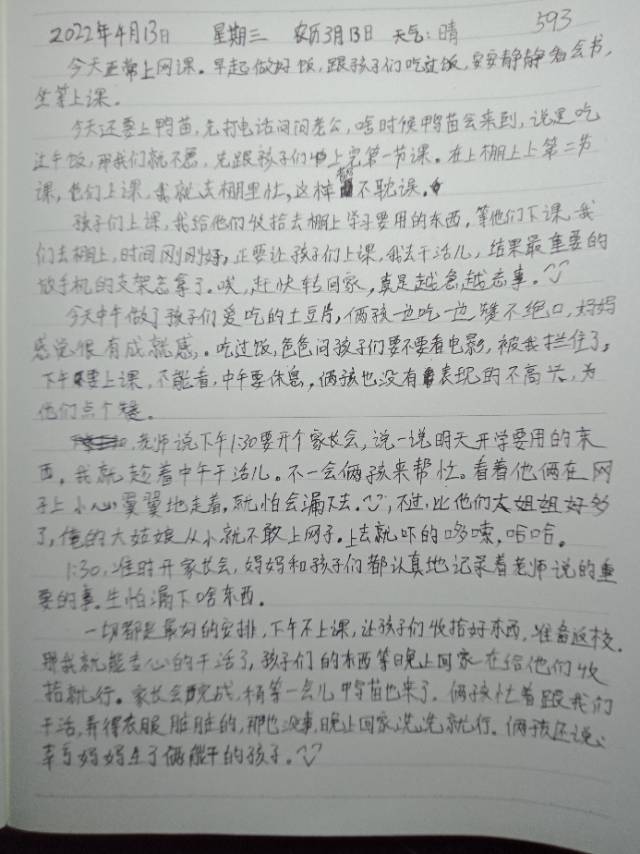 593
2022年4月13日 星期三 农历3月13日 天气:晴
今天正常上网课。早起做好饭,跟孩子们吃过饭,安安静静看会书,
坐等上课。
今天还要上鸭苗,先打电话问问老公,啥时候鸭苗会来到,说是吃
过午饭,那我们就不急,先跟孩子们上完第一节课。在上棚上上第二节
课,他们上课,我就去棚里忙,这样都不耽误。
孩子们上课,我给他们收拾去棚上学习要用的东西,等他们下课,我
们去棚上,时间刚刚好,正要让孩子们上课,我去干活儿,结果最重要的
放手机的支架忘拿了。唉,赶快转回家,真是越急越忘事。
今天中午做了孩子们爱吃的土豆片,俩孩边吃一边赞不绝口,妈妈
感觉很有成就感。吃过饭,爸爸问孩子们要不要看电影,被我拦住了,
下午要上课,不能看,中午要休息,俩孩也没有表现的不高兴,为
他们点个赞。
老师说下午1:30要开个家长会,说一说明天开学要用的东
西。我就趁着中午干活儿。不一会俩孩来帮忙。看着他俩在网
子上小心翼翼地走着,就怕会漏下去。不过,比他们大姐姐好多
了,俺的大姑娘从小就不敢上网子。上去就吓的哆嗦,哈哈。
1:30,准时开家长会,妈妈和孩子们都认真地记录着老师说的重
要的事。生怕漏下啥东西。
一切都是最好的安排,下午不上课,让孩子们收拾好东西,准备返校。
那我就能专心的干活了,孩子们的东西等晚上回家在给他们收
拾就行。家长会完成,稍等一会儿鸭苗也来了。俩孩忙着跟我们
干活,弄得衣服脏脏的,那也没事,晚上回家洗洗就行。俩孩还说:
幸亏妈妈生了俩能干的孩子。